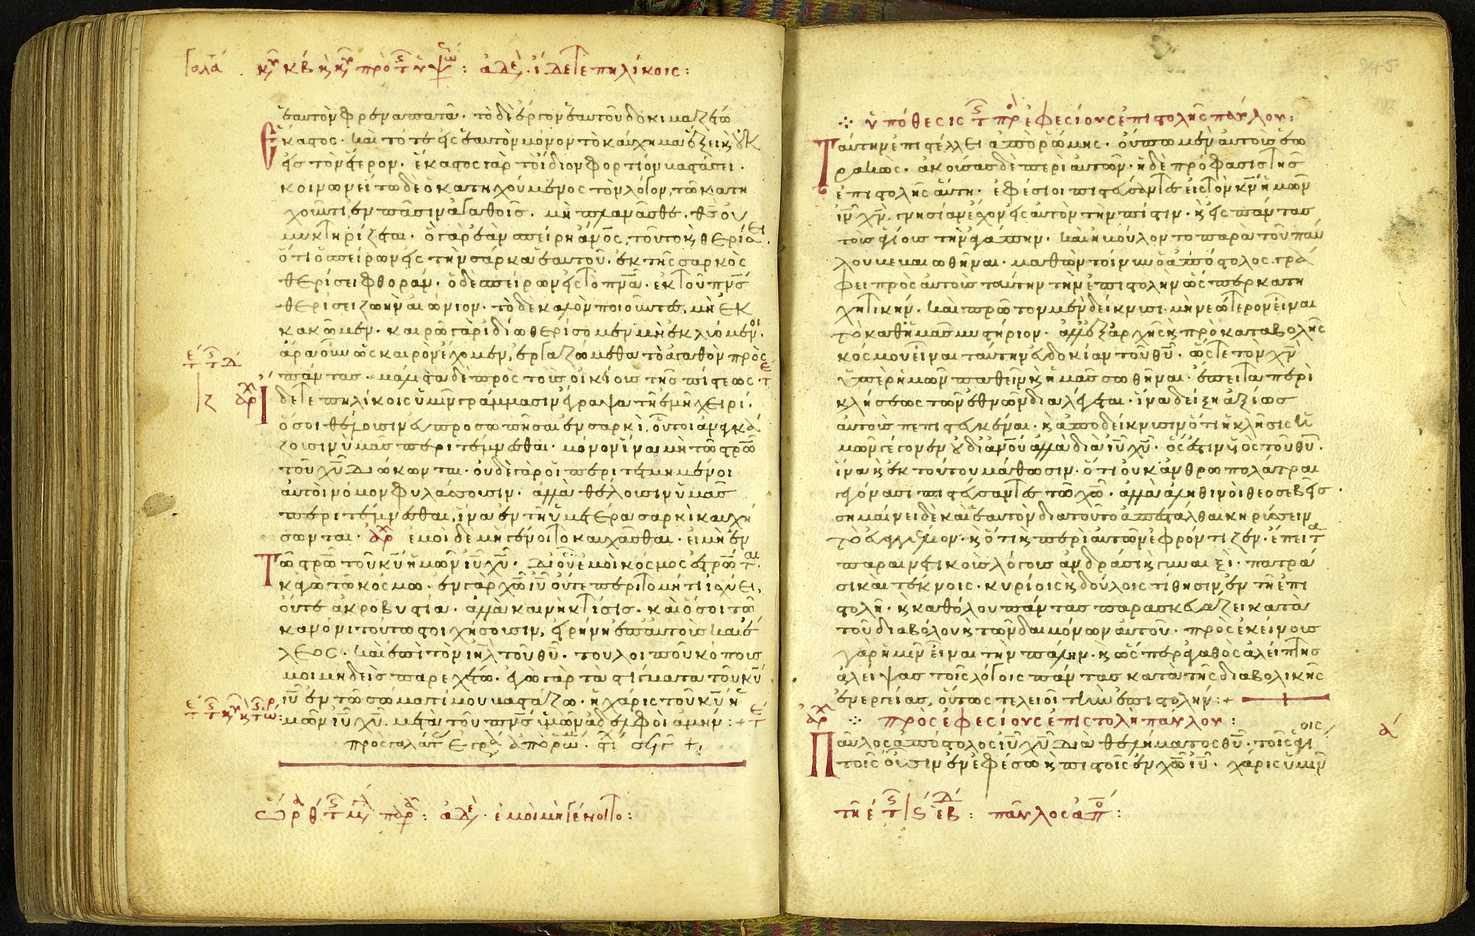 ἑαυτὸν φρεναπατᾶ. τὸ δὲ ἔργον ἑαυτοῦ δοκιμαζέτω
ἕκαστος. καὶ τότε εἰς ἑαυτὸν μόνον τὸ καύχημα ἕξει κ οὐκ
εἰς τὸν ἕτερον. ἕκαστος γὰρ τὸ ἴδιον φορτίον βαστάσει.
κοινωνείτω δὲ ὁ κατηχούμενος τὸν λόγον, τῶ κατη
χοῦντι ἐν πᾶσιν ἀγαθοῖς. μὴ πλανᾶσθε. θσ οὐ
μυκτηρίζεται. ὃ γὰρ ἐὰν σπείρη ἄνος, τοῦτο κ θερίσει.
ὅτι ὁ σπείρων εἰς τὴν σάρκα ἑαυτοῦ. ἐκ τῆς σαρκὸς
θερίσει φθοράν. ὁ δὲ σπείρων εἰς τὸ πνα. ἐκ τοῦ πνς
θερίσει ζωὴν αἰώνιον. τὸ δὲ καλὸν ποιοῦντες, μὴ ἐκ
κακῶμεν. καιρῶ γὰρ ἰδίω θερίσομεν μὴ ἐκλυόμενοι.
ἄρα οὖν ὡς καιρὸν ἔχομεν, ἐργαζώμεθα τὸ ἀγαθὸν πρὸς
πάντας. μάλιστα δὲ πρὸς τοὺς οἰκείους τῆς πίστεως.
Ἴδετε πηλίκοις ὑμῖν γράμμασιν ἔγραψα τῆ ἐμῆ χειρί.
ὅσοι θέλουσιν εὐπροσωπῆσαι ἐν σαρκὶ, οὗτοι ἀναγκά
ζουσιν ὑμᾶς περιτέμνεσθαι. μόνον ἵνα μὴ τῶ στρῶ
τοῦ χυ διώκωνται. οὐδὲ γὰρ οἱ περιτεμημένοι
αὐτοὶ νόμον φυλάσσουσιν. ἀλλὰ θέλουσιν ὑμᾶς
περιτέμνεσθαι, ἵνα ἐν τῆ ὑμετέρα σαρκὶ καυχή
σωνται. ἐμοὶ δὲ μὴ γένοιτο καυχᾶσθαι. εἰ μὴ ἐν
Τῶ στρῶ τοῦ κυ ἡμῶν ιυ χυ. δι οὗ ἐμοὶ κόσμος ἐστρωται
κἀγὼ τῶ κόσμω. ἐν γὰρ χω ιυ οὔτε περιτομή τι ἰσχύει,
οὔτε ἀκροβυστία. ἀλλὰ καινὴ κτίσις. καὶ ὅσοι τῶ
κανόνι τούτω στοιχήσουσιν, εἰρήνη ἐπ αὐτοὺς καὶ ἔ
λεος. καὶ ἐπὶ τὸν ιηλ τοῦ θυ. τοῦ λοιποῦ κόπους
μοι μηδεὶς παρεχέτω. ἐγὼ γὰρ τὰ στίγματα τοῦ κυ
ιυ ἐν τῶ σώματί μου βαστάζω. ἡ χάρις τοῦ κυ ἡ
μῶν ιυ χυ. μετὰ τοῦ πνς ὑμῶν ἀδελφοὶ ἀμήν:
ὑπόθεσις τ πρ ἐφεσίους ἐπιστολῆς παύλου:
Ταύτην ἐπιστέλλει ἀπὸ ρώμης. οὔπω μὲν αὐτοὺς ἑω
ρακὼς. ἀκούσας δὲ περὶ αὐτῶν. ἡ δὲ πρόφασις τῆς
ἐπιστολῆς αὕτη. ἐφέσιοι πιστεύσαντες εἰς τὸν κν ἡμῶν
ιν χν. γνησίαν ἔχον εἰς αὐτὸν τὴν πίστιν. κ εἰς πάντας
τοὺς ἁγίους τὴν ἀγάπην. καὶ ἠβούλοντο παρὰ τοῦ παύ
λου βεβαιωθῆναι. μαθὼν τοίνυν ὁ ἀπόστολος. γρά
φει πρὸς αὐτοὺς ταύτην τὴν ἐπιστολὴν ὥσπερ κατη
χητικήν. καὶ πρῶτον μὲν δείκνυσι. μὴ νεώτερον εἶναι
τὸ καθ ἡμᾶς μυστήριον. ἀλλ ἐξ ἀρχῆς κ πρὸ καταβολῆς
κόσμου εἶναι ταύτην εὐδοκίαν τοῦ θυ. ὥστε τὸν χν
ὑπὲρ ἡμῶν παθεῖν κ ἡμᾶς σωθῆναι. ἔπειτα περὶ
κλήσεως τῶν ἐθνῶν διαλέγεται. ἵνα δείξη ἀξίως
αὐτοὺς πεπιστευκέναι. κ ἀποδείκνυσιν ὅτι ἡ κλῆσις ὑ
μῶν γέγονεν οὐ δι ἀνου ἀλλὰ διὰ ιυ χυ. ὅς ἐστιν υἱὸς τοῦ θυ.
ἵνα κ ἐκ τούτου μάθωσιν. ὅτι οὐκ ἀνθρωπολάτραι
γεγόνασι πιστεύσαντες τῶ χω. ἀλλὰ ἀληθινοὶ θεοσεβεῖς.
σημαίνει δὲ καὶ ἑαυτὸν διὰ τοῦτο ἀπεστάλθαι κηρύσσειν
τὸ εὐαγγέλιον. κ ὅτι κ περὶ αὐτῶν ἐφρόντιζεν. ἔπειτα
παραινετικοῖς λόγοις ἀνδράσι κ γυναιξὶ. πατρά
σι καὶ τέκνοις. κυρίοις κ δούλοις τίθησιν ἐν τῆ ἐπι
στολῆ. κ καθόλου πάντας παρασκευάζει κατὰ
τοῦ διαβόλου κ τῶν δαιμόνων αὐτοῦ. πρὸς ἐκείνους
γὰρ ἡμῖν εἶναι τὴν πάλην. κ ὥσπερ ἀγαθὸς ἀλείπτης
ἀλείψας τοῖς λόγοις πάντας κατὰ τῆς διαβολικῆς
ἐνεργείας, οὕτως τελειοῖ τὴν ἐπιστολήν:
πρὸς ἐφεσίους ἐπιστολὴ παύλου:
Παῦλος ἀπόστολος ιυ χυ διὰ θελήματος θυ. τοῖς ἁγίοις
τοῖς οὖσιν ἐν ἐφέσω κ πιστοῖς ἐν χω ιυ. χάρις ὑμῖν